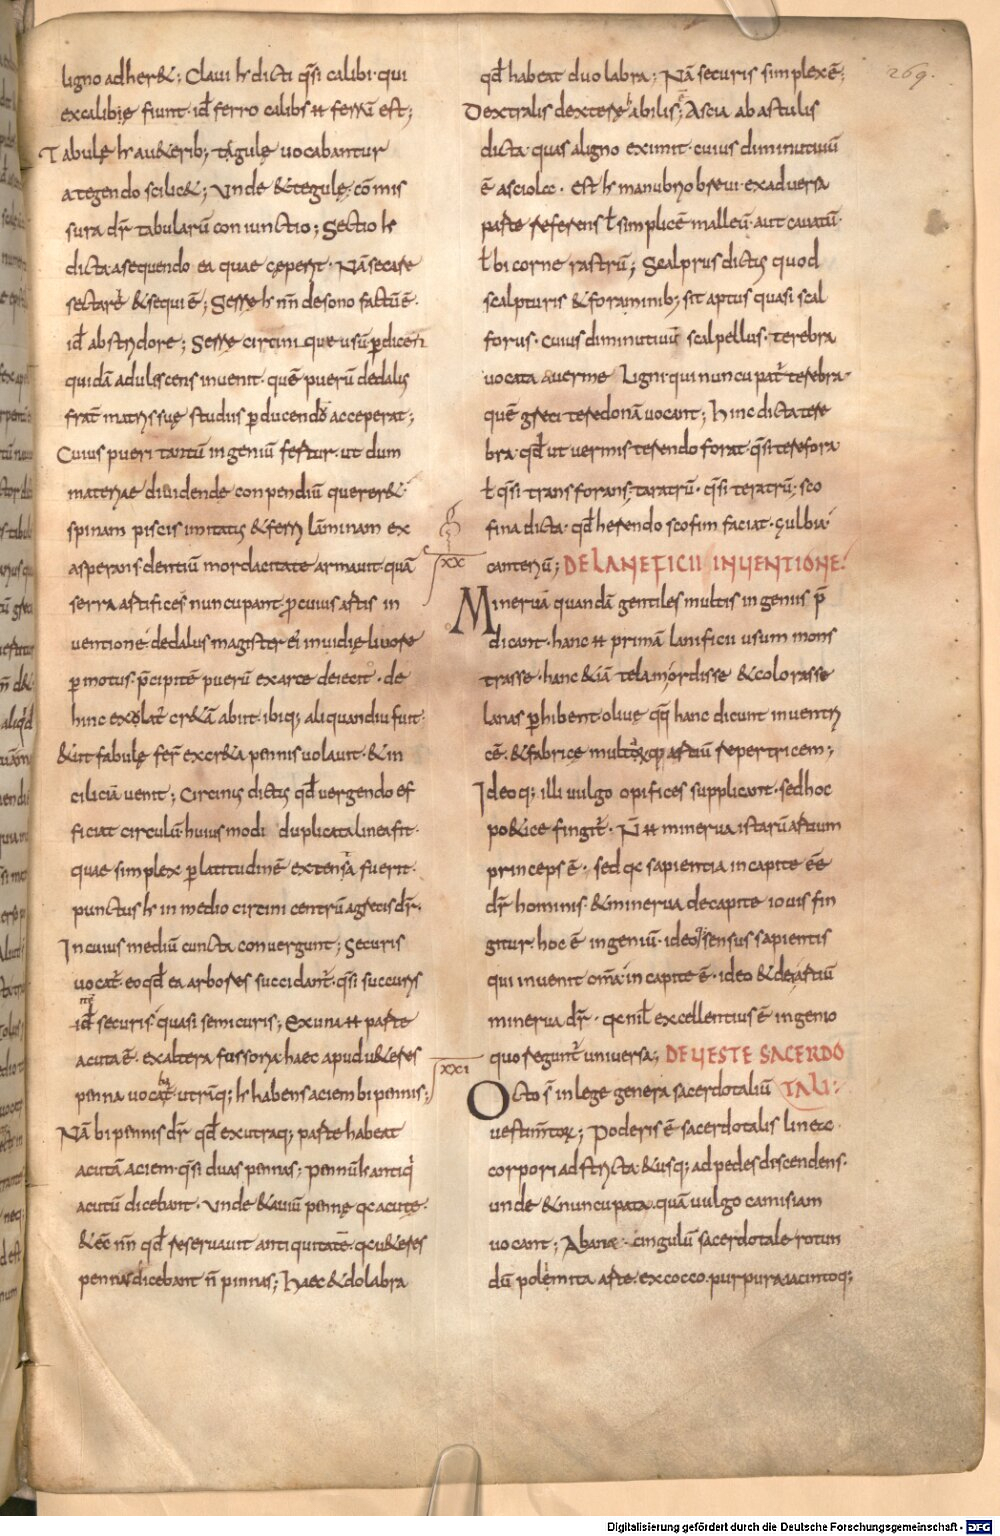 ligno adher&; Claui hr dicti q̄si calibi· qui
excalibię fiunt· id̄ ferro calibs H ferrū est;
Tabulę hr au&erib; tagulę uocabantur
a tegendo scilic&; unde &tegulę· cō mis
sura dr̄ tabularū coniunctio; Sectio hr
dicta a sequendo ea quae cęperit· Nā secare
sectarē &sequi ē; Serre hr nn̄ de sono factū ē·
id̄ ab stridore; Serre circini que usū p̱dicen
quidā adulescens inuenit· quē puerū dedalus
frat̄ matris suę studiis p̱ducendū acceperat;
Cuius pueri tantū ingeniū fertur· ut dum
materiae diuidende conpendiū querer&·
spinam piscis imitatus &ferri lāminam ex
asperans dentiū mordacitate armauit· quā
serra artifices nuncupant· p̱ cuius artis in
uentione· dedalus magister ei inuidię liuore
p̱motus· p̄cipitē puerū ex arce deiecit· de
hinc exolat̄ cr&ā abiit· ibiq; aliquandiu fuit·
&ut fabulę fer̄ ex cr&a pennis uolauit· &in
ciliciā uenit; Circinus dictus qd̄ uergendo ef
ficiat circulū· huius modi duplicata linea fit·
quae simplex p̱ latitudinē extensa fuerit·
punctus hr in medio circini centrū a grecis dr̄·
In cuius mediū cuncta conuergunt; Securis
uocat̄· eo qd̄ ea arbores succidant̄· q̄si succuris
id̄ securis quasi semicuris; Ex una H parte
acuta ē· ex altera fussoria· haec apud u&eres
penna uocabat̄· utriq; hr habens aciem bipennis;
Nā bipennis dr̄ qd̄ ex utraq; parte habeat
acutā aciem· q̄si duas pennas; pennū hr antiq'
acutū dicebant· unde &auiū pennę qc acutę·
&ec̄ nn̄ qd̄ reseruauit antiquitatē· qc u&eres
pennas dicebant n̄ pinnas; Haec &dolabra
qd̄ habeat duo labra; Nā securis simplex ē;
Dextralis dextere habilis; Ascia ab astulis
dicta· quas a ligno eximit· cuius diminutiuū
ē asciolcc· Est hr manubrio breui· ex aduersa
parte referens ł simplicē malleū· aut cauatū·
ł bicorne rastrū; Scalprus dictus quod
scalpturis &foraminib; sit aptus quasi scal
forus· cuius diminutiuū scalpellus· terebra
uocata a uerme ligni· qui nuncupat̄ terebra·
quē greci teredonā uocant; hinc dicta tere
bra· qd̄ ut uermis terendo forat· q̄si terefora
ł q̄si transforans· taratrū· q̄si teratrū; sco
fina dicta· qd̄ herendo scofim faciat· guluia·
canteriū; DE LANEFICII INUENTIONE·
XX
Mineruā quandā gentiles multis ingeniis p̄
dicant· hanc H primā lanificii usum mons
trasse· hanc &iā telam ordisse &colorasse
lanas p̱hibent· oliuę q̄q hanc dicunt inuentri
cē· &fabrice multorūq; artiū repertricem;
Ideoq; illi uulgo opifices supplicant· sed hoc
po&ice fingit̄· N̄ H minerua istarū artium
princeps ē· sed qc sapientia in capite ēē
dr̄ hominis· &minerua de capite iouis fin
gitur hoc ē ingeniū· ideo sensus sapientis
qui inuenit om̄a· in capite ē· ideo &dea artiū
minerua dr̄· qc nil̄ excellentius ē ingenio
quo regunt̄ uniuersa; DE UESTE SACERDO
XXI
Octo s̄ in lege genera sacerdotaliū TALI·
uestimtoꝝ; Poderis ē sacerdotalis lineę·
corpori adstricta &usq; ad pedes discendens·
unde &nuncupata· quā uulgo camisiam
uocant; Abanę· cingulū sacerdotale rotun
dū polemita arte· ex cocco· purpura· iacintoq;
269.
Digitalisierung gefördert durch die Deutsche Forschungsgemeinschaft - DFG